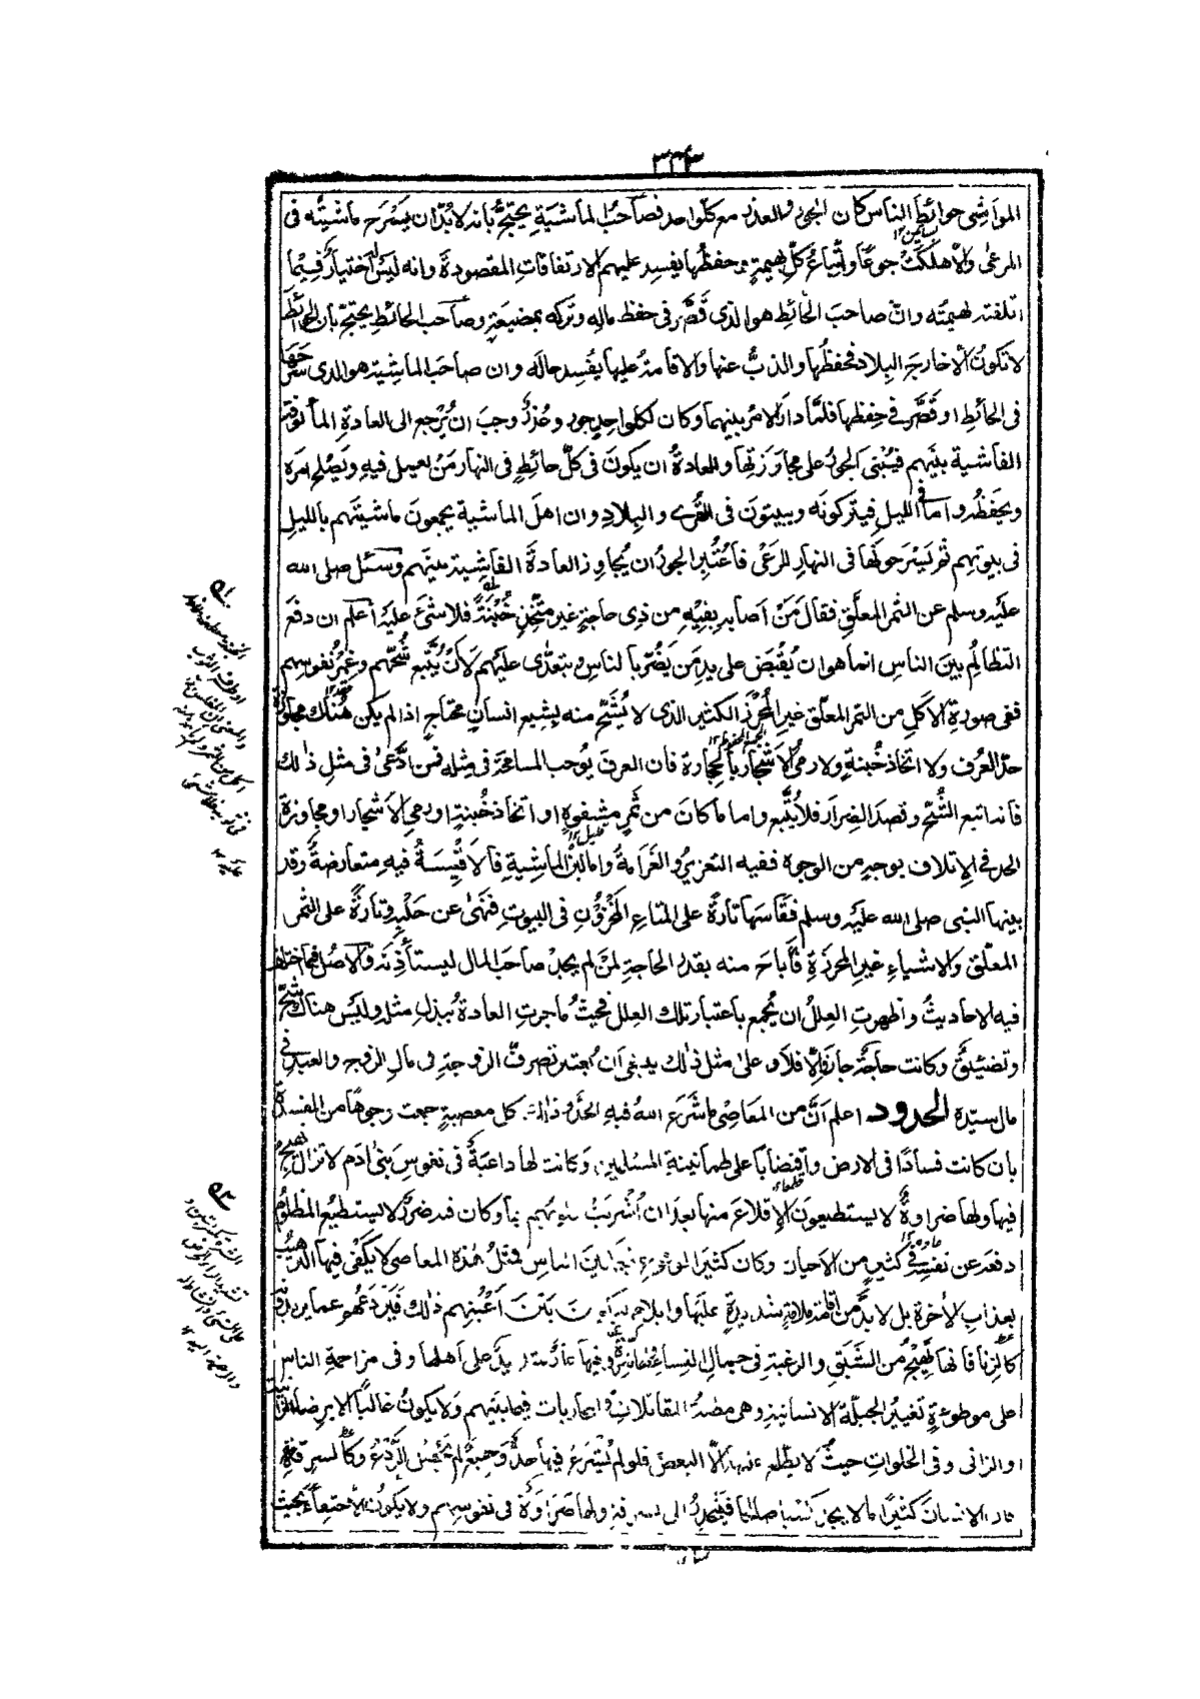 ٣٣٣
المواشي حوائط الناس كان الجور والعذر مع كل واحد فصاحب الماشية يحتج بانه لا بد ان يسرح ماشيته فى
المرعى والا هلكت جوعا واتباع كل بهيمة وحفظها يفسد عليهم الارتفاقات المقصودة وانه ليس له اختيار فيما
اتلفته بهيمته وان صاحب الحائط هو الذى قصر فى حفظ ماله وتركه بمضيعة وصاحب الحائط يحتج بان الحوائط
لا تكون الا خارج البلاد فحفظها والذب عنها والاقامة عليها يفسد حاله وان صاحب الماشية هو الذى سرحها
فى الحائط او قصر فى حفظها فلما دار الامر بينهما وكان لكل واحد جور وعذر وجب ان يرجع الى العادة المألوفة
الفاشية بينهم فيبنى الجور على مجاوزتها والعادة ان يكون فى كل حائط فى النهار من يعمل فيه ويصلح امره
ويحفظه واما فى الليل فيتركونه ويبيتون فى القرى والبلاد وان اهل الماشية يجمعون ماشيتهم بالليل
فى بيوتهم ثم يسرحونها فى النهار للرعى فاعتبر الجور ان يجاوز العادة الفاشية بينهم وسئل صلى الله
عليه وسلم عن الثمر المعلق فقال من اصابه بفيه من ذى حاجة غير متخذ خبنة فلا شئ عليه اعلم ان دفع
التظالم بين الناس انما هو ان يقبض على يد من يضر بالناس ويتعدى عليهم لا ان يتبع شحهم وغمر نفوسهم
ففى صورة الاكل من الثمر المعلق غير المحرز الكثير الذى لا يشح منه بشبع انسان محتاج اذا لم يكن هناك مجاوزة
حد العرف ولا اتخاذ خبنة ولا رمى الاشجار بالحجارة فان العرف يوجب المسامحة فى مثله فمن ادعى فى مثل ذلك
فانه اتبع الشح وقصد الضرار فلا يتبع واما ما كان من ثمر مشفوه او اتخاذ خبنة او رمى الاشجار او مجاوزة
الحد فى الاتلاف بوجه من الوجوه ففيه التعزير والغرامة واما لبن الماشية فالاقيسة فيه متعارضة وقد
بينها النبى صلى الله عليه وسلم فقاسها تارة على المتاع المخزون فى البيوت فنهى عن حلبه وتارة على الثمر
المعلق والاشياء غير المحرزة فاباح منه بقدر الحاجة لمن لم يجد صاحب المال ليستأذنه والاصل فيما اختلف
فيه الاحاديث واظهرت العلل ان يجمع باعتبار تلك العلل فحيث ما جرت العادة ببذل مثله وليس هناك شح
وتضييق وكانت حاجة جاز والا فلا وعلى مثل ذلك ينبغى ان يعتبر تصرف الزوجة فى مال الزوج والعبد فى
مال سيده الحدود اعلم ان من المعاصى ما شرع الله فيه الحد وذلك كل معصية جمعت وجوها من المفسدة
بان كانت فسادا فى الارض واقتضابا على طمانينة المسلمين وكانت لها داعية فى نفوس بنى ادم لا تزال تهيج
فيها ولها ضراوة لا يستطيعون الاقلاع منها بعد ان اشربت قلوبهم بها وكان فيه ضرر لا يستطيع المظلوم
دفعه عن نفسه فى كثير من الاحيان وكان كثير الوقوع فيما بين الناس فمثل هذه المعاصى لا يكفى فيها الترهيب
بعذاب الاخرة بل لا بد من اقامة ملامة شديدة عليها وايلام ليكون بين اعينهم ذلك فيردعهم عما يريدونه
كالزنا فانها تهيج من الشبق والرغبة فى جمال النساء ولها شرة وفيها عار شديد على اهلها وفى مزاحمة الناس
على موطوءة تغيير الجبلة الانسانية وهى مظنة المقاتلات والمحاربات فيما بينهم ولا يكون غالبا الا برضا الزانية
والزانى وفى الخلوات حيث لا يطلع عليها الا البعض فلو لم يشرع فيها حد وجيع لم يحصل الردع وكالسرقة
فان الانسان كثيرا ما لا يجد كسبا صالحا فينحدر الى السرقة ولها ضراوة فى نفوسهم ولا يكون الا اختفاء بحيث